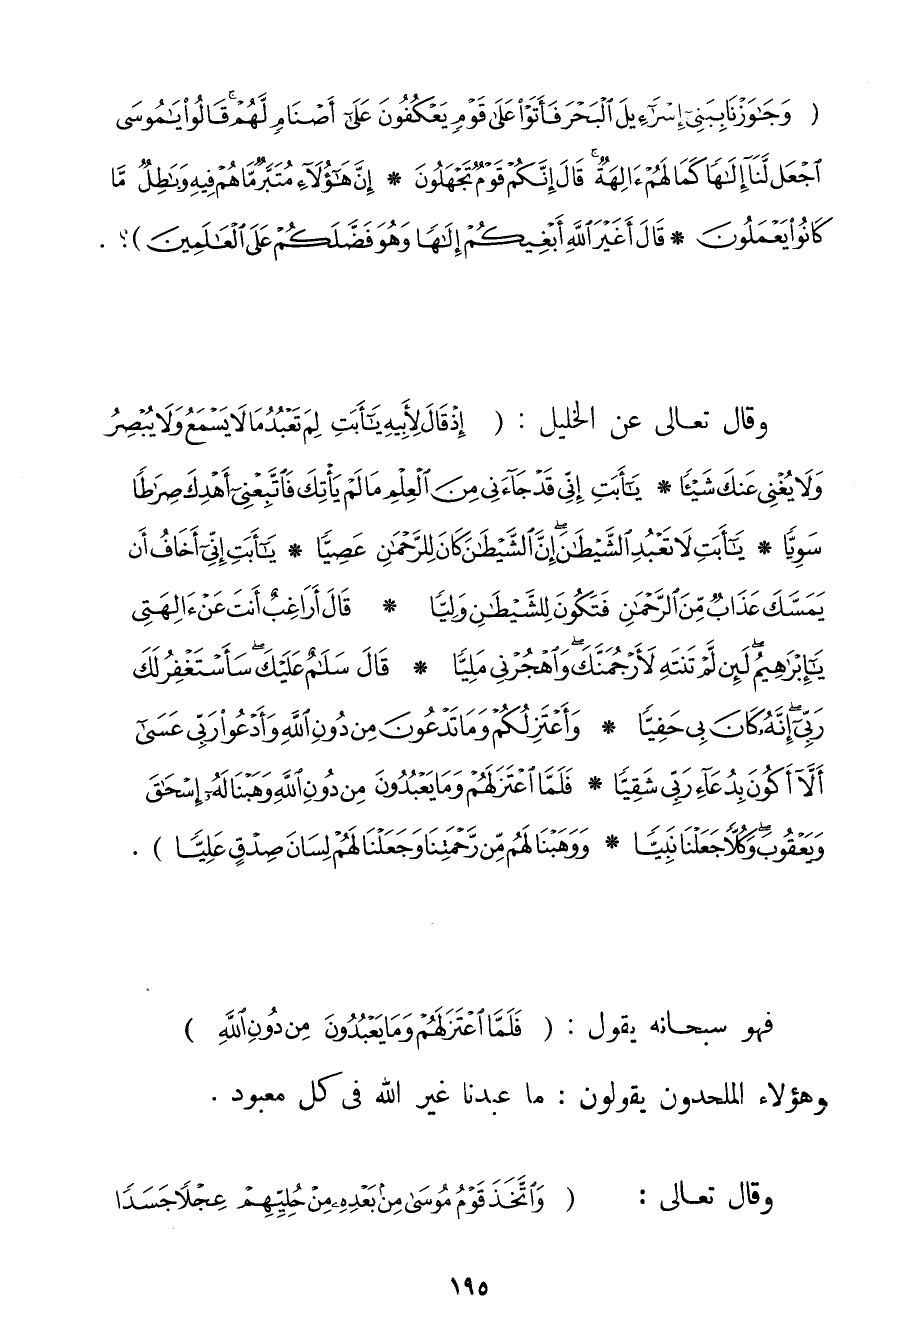 ( وَجَٰوَزْنَا بِبَنِىٓ إِسْرَٰٓءِيلَ ٱلْبَحْرَ فَأَتَوْا۟ عَلَىٰ قَوْمٍ يَعْكُفُونَ عَلَىٰٓ أَصْنَامٍ لَّهُمْ ۚ قَالُوا۟ يَٰمُوسَى
ٱجْعَل لَّنَآ إِلَٰهًا كَمَا لَهُمْ ءَالِهَةٌ ۚ قَالَ إِنَّكُمْ قَوْمٌ تَجْهَلُونَ * إِنَّ هَٰٓؤُلَآءِ مُتَبَّرٌ مَّا هُمْ فِيهِ وَبَٰطِلٌ مَّا
كَانُوا۟ يَعْمَلُونَ * قَالَ أَغَيْرَ ٱللَّهِ أَبْغِيكُمْ إِلَٰهًا وَهُوَ فَضَّلَكُمْ عَلَى ٱلْعَٰلَمِينَ )؟ .
وقال تعالى عن الخليل : ( إِذْ قَالَ لِأَبِيهِ يَٰٓأَبَتِ لِمَ تَعْبُدُ مَا لَا يَسْمَعُ وَلَا يُبْصِرُ
وَلَا يُغْنِى عَنكَ شَيْـًٔا * يَٰٓأَبَتِ إِنِّى قَدْ جَآءَنِى مِنَ ٱلْعِلْمِ مَا لَمْ يَأْتِكَ فَٱتَّبِعْنِىٓ أَهْدِكَ صِرَٰطًا
سَوِيًّا * يَٰٓأَبَتِ لَا تَعْبُدِ ٱلشَّيْطَٰنَ ۖ إِنَّ ٱلشَّيْطَٰنَ كَانَ لِلرَّحْمَٰنِ عَصِيًّا * يَٰٓأَبَتِ إِنِّىٓ أَخَافُ أَن
يَمَسَّكَ عَذَابٌ مِّنَ ٱلرَّحْمَٰنِ فَتَكُونَ لِلشَّيْطَٰنِ وَلِيًّا * قَالَ أَرَاغِبٌ أَنتَ عَنْ ءَالِهَتِى
يَٰٓإِبْرَٰهِيمُ ۖ لَئِن لَّمْ تَنتَهِ لَأَرْجُمَنَّكَ ۖ وَٱهْجُرْنِى مَلِيًّا * قَالَ سَلَٰمٌ عَلَيْكَ ۖ سَأَسْتَغْفِرُ لَكَ
رَبِّىٓ ۖ إِنَّهُۥ كَانَ بِى حَفِيًّا * وَأَعْتَزِلُكُمْ وَمَا تَدْعُونَ مِن دُونِ ٱللَّهِ وَأَدْعُوا۟ رَبِّى عَسَىٰٓ
أَلَّآ أَكُونَ بِدُعَآءِ رَبِّى شَقِيًّا * فَلَمَّا ٱعْتَزَلَهُمْ وَمَا يَعْبُدُونَ مِن دُونِ ٱللَّهِ وَهَبْنَا لَهُۥٓ إِسْحَٰقَ
وَيَعْقُوبَ ۖ وَكُلًّا جَعَلْنَا نَبِيًّا * وَوَهَبْنَا لَهُم مِّن رَّحْمَتِنَا وَجَعَلْنَا لَهُمْ لِسَانَ صِدْقٍ عَلِيًّا ) .
فهو سبحانه يقول : ( فَلَمَّا ٱعْتَزَلَهُمْ وَمَا يَعْبُدُونَ مِن دُونِ ٱللَّهِ )
وهؤلاء الملحدون يقولون : ما عبدنا غير الله فى كل معبود .
وقال تعالى : ( وَٱتَّخَذَ قَوْمُ مُوسَىٰ مِنۢ بَعْدِهِۦ مِنْ حُلِيِّهِمْ عِجْلًا جَسَدًا
١٩٥